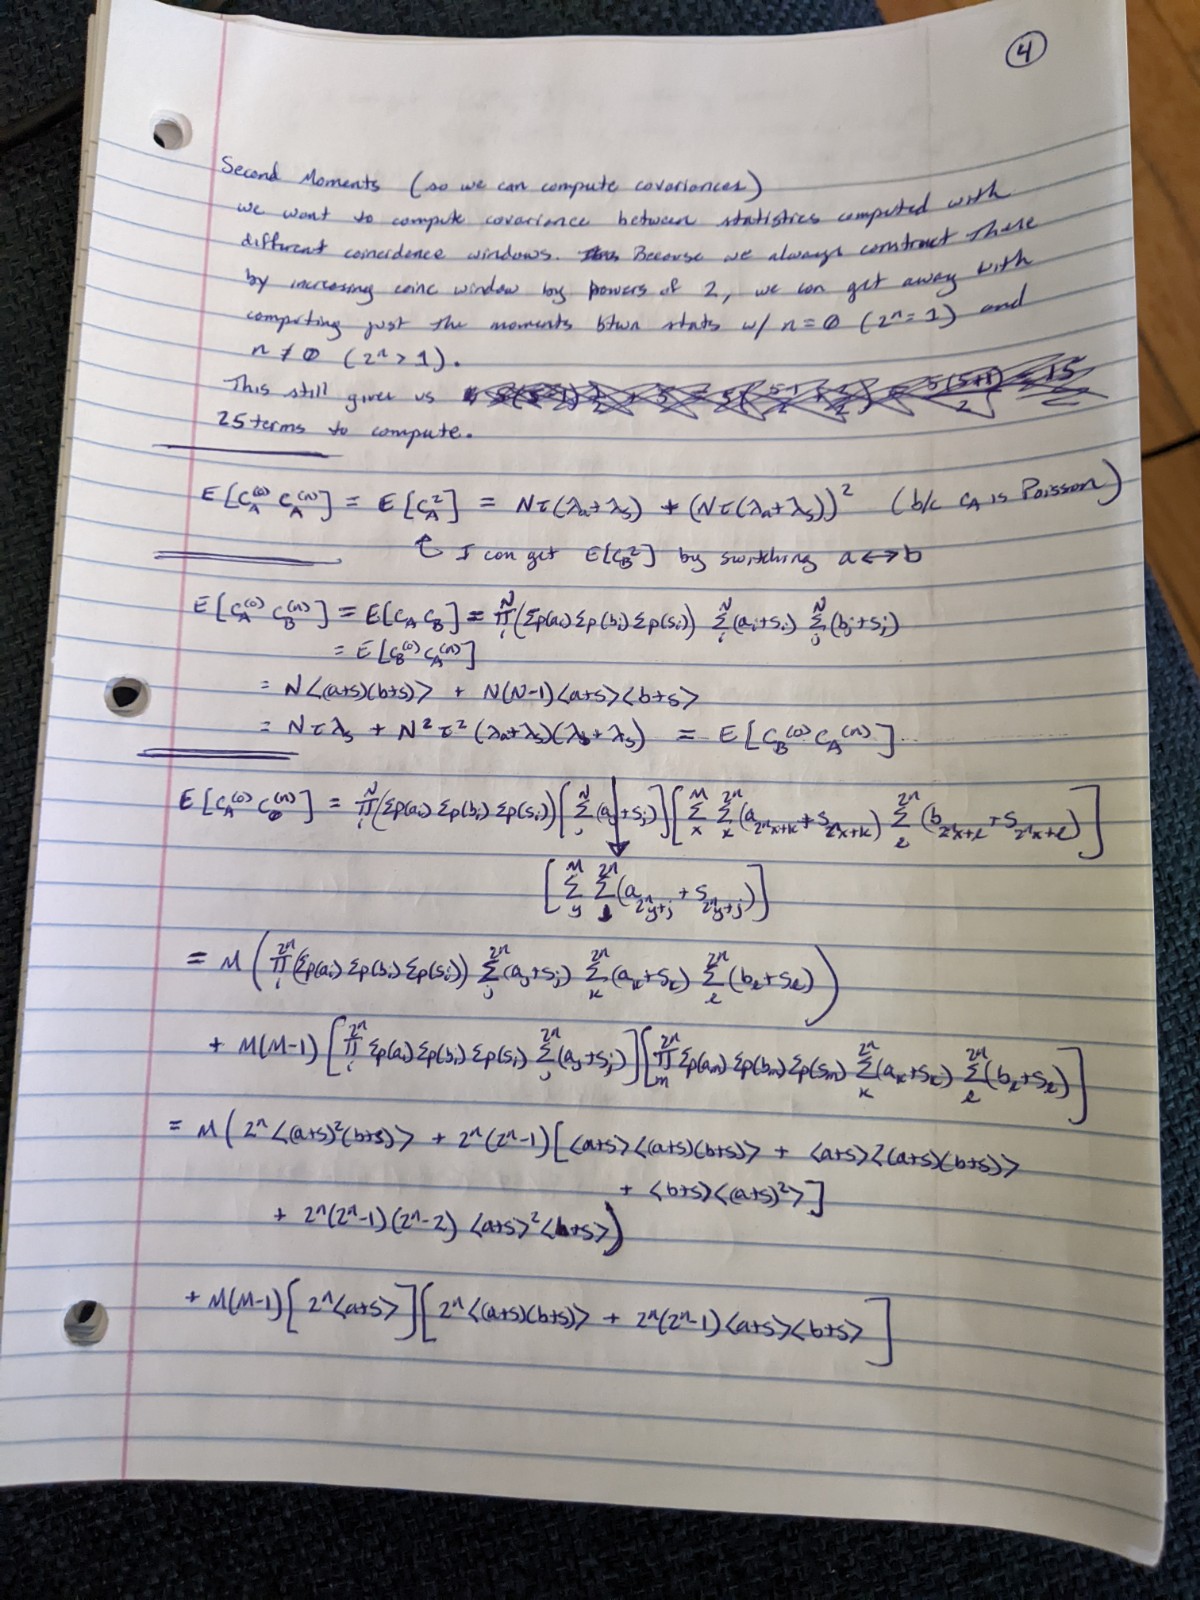 ④
Second Moments (so we can compute covariances)
we want to compute covariance between statistics computed with
different coincidence windows. Because we always construct these
by increasing coinc window by powers of 2, we can get away with
computing just the moments btwn stats w/ n=0 (2ⁿ=1) and
n≠0 (2ⁿ>1).
This still gives us
25 terms to compute.
E[C_A^(0) C_A^(n)] = E[C_A²] = Nτ(λa+λs) + (Nτ(λa+λs))² (b/c C_A is Poisson)
↑ I can get E[C_B²] by switching a↔b
E[C_A^(0) C_B^(n)] = E[C_A C_B] = Π_i^N(Σp(ai)Σp(bi)Σp(si)) Σ_i^N(ai+si) Σ_j^N(bj+sj)
= E[C_B^(0) C_A^(n)]
= N<(a+s)(b+s)> + N(N-1)<a+s><b+s>
= Nτλs + N²τ²(λa+λs)(λb+λs) = E[C_B^(0) C_A^(n)]
E[C_A^(0) C_0^(n)] = Π_i^N(Σp(ai)Σp(bi)Σp(si))[Σ_j^N(aj+sj)][Σ_x^M Σ_k^2ⁿ(a_2ⁿx+k + s_2ⁿx+k) Σ_ℓ^2ⁿ(b_2ⁿx+ℓ + s_2ⁿx+ℓ)]
[Σ_y^M Σ_j^2ⁿ(a_2ⁿy+j + s_2ⁿy+j)]
= M(Π_i^2ⁿ(Σp(ai)Σp(bi)Σp(si)) Σ_j^2ⁿ(aj+sj) Σ_k^2ⁿ(ak+sk) Σ_ℓ^2ⁿ(bℓ+sℓ))
+ M(M-1)[Π_i^2ⁿ Σp(ai)Σp(bi)Σp(si) Σ_j^2ⁿ(aj+sj)][Π_m^2ⁿ Σp(am)Σp(bm)Σp(sm) Σ_k^2ⁿ(ak+sk) Σ_ℓ^2ⁿ(bℓ+sℓ)]
= M(2ⁿ<(a+s)²(b+s)> + 2ⁿ(2ⁿ-1)[<a+s><(a+s)(b+s)> + <a+s><(a+s)(b+s)>
+ <b+s><(a+s)²>]
+ 2ⁿ(2ⁿ-1)(2ⁿ-2)<a+s>²<b+s>)
+ M(M-1)[2ⁿ<a+s>][2ⁿ<(a+s)(b+s)> + 2ⁿ(2ⁿ-1)<a+s><b+s>]